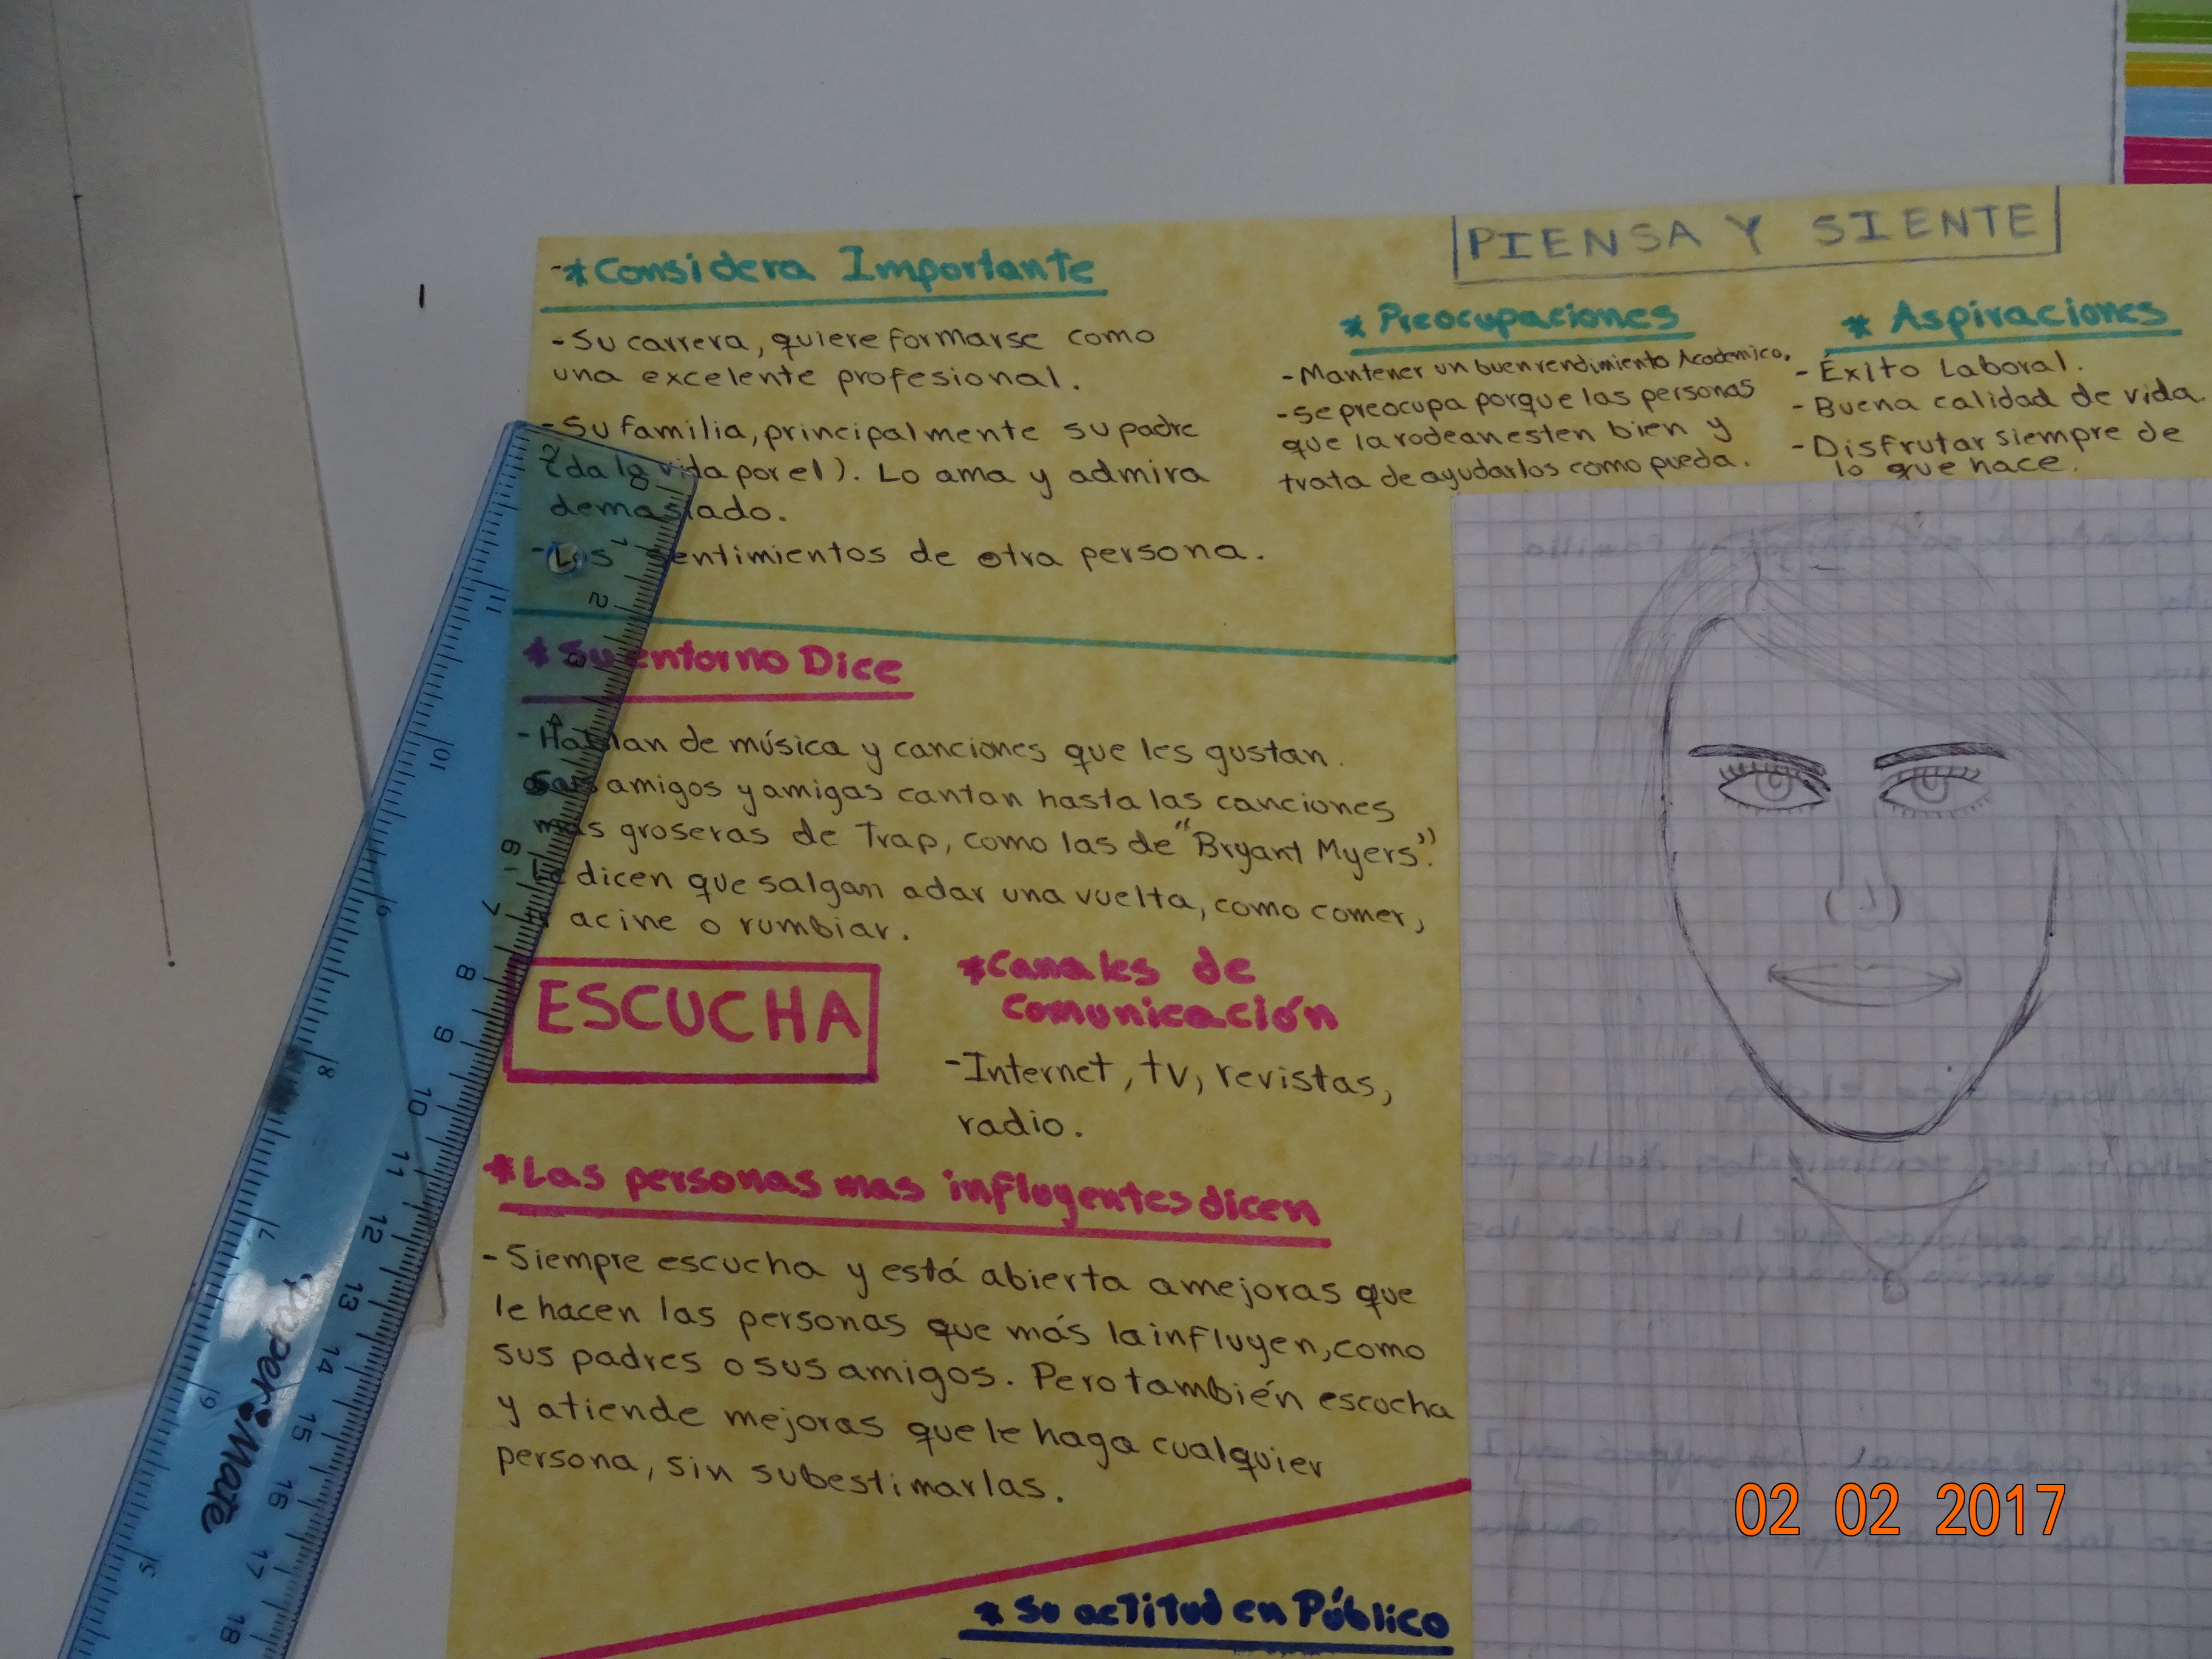 PIENSA Y SIENTE
*Considera Importante
-Su carrera, quiere formarse como
una excelente profesional.
-Su familia, principalmente su padre
(da la vida por el). Lo ama y admira
demasiado.
-Los sentimientos de otra persona.
* Preocupaciones
-Mantener un buen rendimiento Academico.
-Se preocupa porque las personas
que la rodean esten bien y
trata de ayudarlos como pueda.
* Aspiraciones
-Éxito Laboral.
-Buena calidad de vida.
-Disfrutar siempre de
lo que hace.
*Su entorno Dice
-Hablan de música y canciones que les gustan.
Sus amigos y amigas cantan hasta las canciones
más groseras de Trap, como las de "Bryant Myers".
-Le dicen que salgan a dar una vuelta, como comer,
a cine o rumbiar.
ESCUCHA
*Canales de
Comunicación
-Internet, tv, revistas,
radio.
*Las personas mas influyentes dicen
-Siempre escucha y está abierta a mejoras que
le hacen las personas que más la influyen, como
sus padres o sus amigos. Pero también escucha
y atiende mejoras que le haga cualquier
persona, sin subestimarlas.
* Su actitud en Público
Paper Mate
02 02 2017